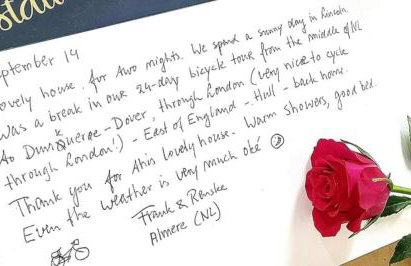 ptember 14
ovely house, for two nights. We spend a sunny day in Lincoln.
was a break in our 24-day bicycle tour from the middle of NL
to Dunkquerqe - Dover, through London (very nice to cycle
through London!) - East of England - Hull - back home.
Thank you for this lovely house. Warm showers, good bed.
Even the weather is very much oké
Frank & Renske
Almere (NL)